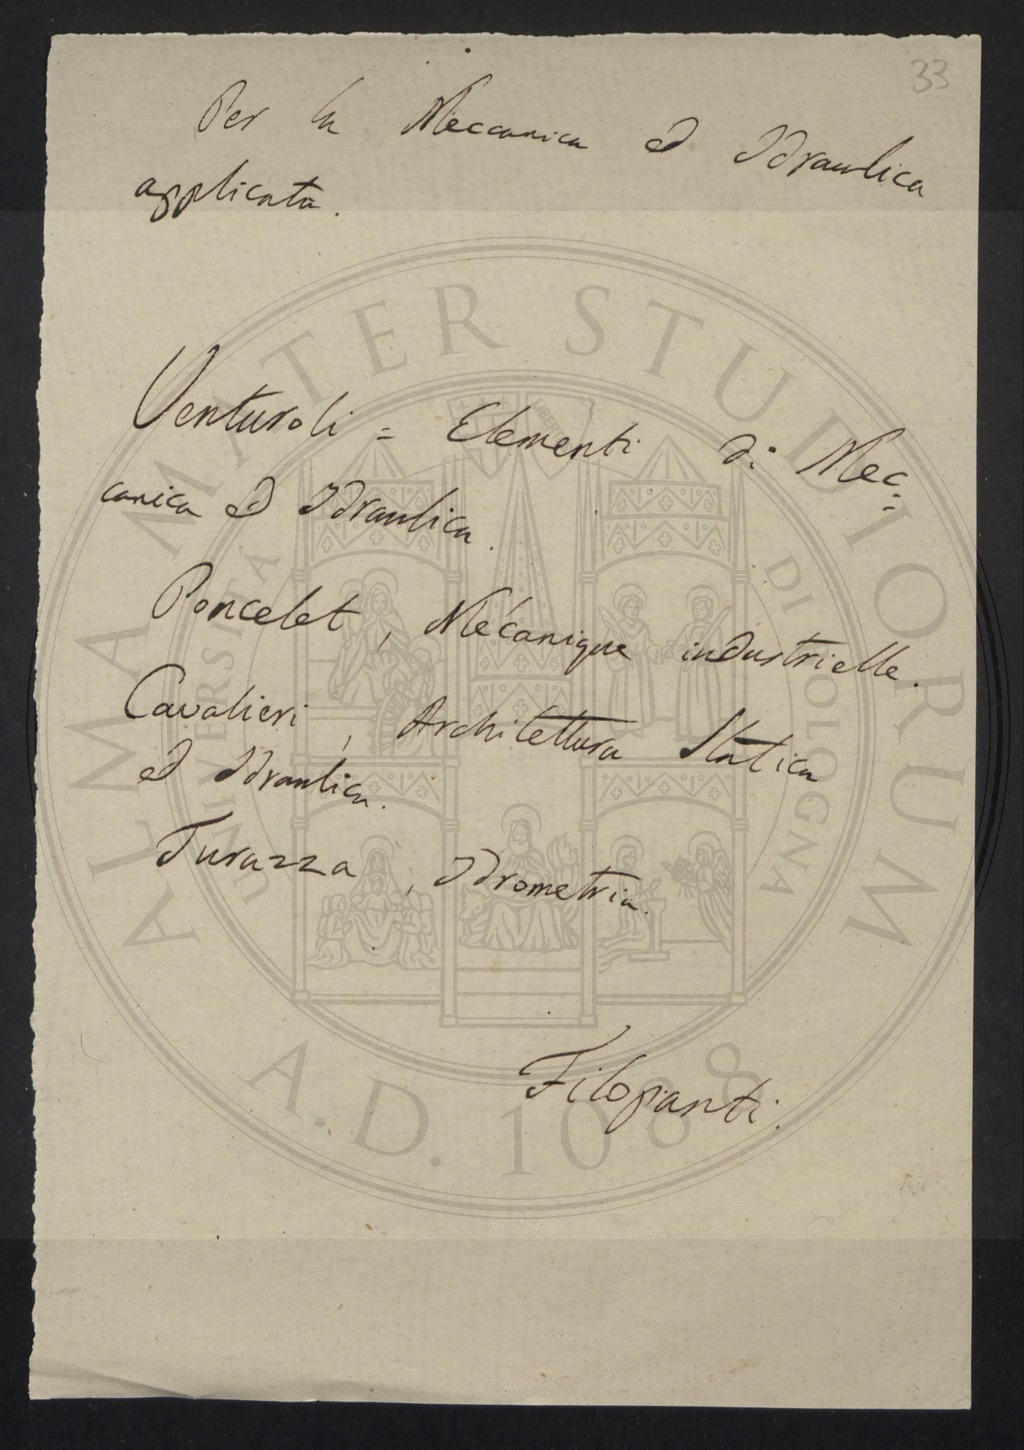 33
Per la Meccanica ed Idraulica
applicata.
Venturoli = Elementi di Mec=
canica ed Idraulica.
Poncelet, Mécanique industrielle.
Cavalieri, Architettura Statica
ed Idraulica.
Turazza, Idrometria.
Filopanti.
ALMA MATER STUDIORUM
UNIVERSITÀ DI BOLOGNA
A.D. 1088